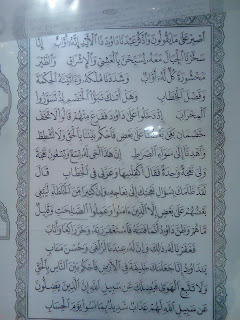 ٱصْبِرْ عَلَىٰ مَا يَقُولُونَ وَٱذْكُرْ عَبْدَنَا دَاوُۥدَ ذَا ٱلْأَيْدِ إِنَّهُۥٓ أَوَّابٌ إِنَّا
سَخَّرْنَا ٱلْجِبَالَ مَعَهُۥ يُسَبِّحْنَ بِٱلْعَشِىِّ وَٱلْإِشْرَاقِ وَٱلطَّيْرَ
مَحْشُورَةً كُلٌّ لَّهُۥٓ أَوَّابٌ وَشَدَدْنَا مُلْكَهُۥ وَءَاتَيْنَٰهُ ٱلْحِكْمَةَ
وَفَصْلَ ٱلْخِطَابِ وَهَلْ أَتَىٰكَ نَبَؤُا۟ ٱلْخَصْمِ إِذْ تَسَوَّرُوا۟
ٱلْمِحْرَابَ إِذْ دَخَلُوا۟ عَلَىٰ دَاوُۥدَ فَفَزِعَ مِنْهُمْ قَالُوا۟ لَا تَخَفْ
خَصْمَانِ بَغَىٰ بَعْضُنَا عَلَىٰ بَعْضٍ فَٱحْكُم بَيْنَنَا بِٱلْحَقِّ وَلَا تُشْطِطْ
وَٱهْدِنَآ إِلَىٰ سَوَآءِ ٱلصِّرَٰطِ إِنَّ هَٰذَآ أَخِى لَهُۥ تِسْعٌ وَتِسْعُونَ نَعْجَةً
وَلِىَ نَعْجَةٌ وَٰحِدَةٌ فَقَالَ أَكْفِلْنِيهَا وَعَزَّنِى فِى ٱلْخِطَابِ قَالَ
لَقَدْ ظَلَمَكَ بِسُؤَالِ نَعْجَتِكَ إِلَىٰ نِعَاجِهِۦ وَإِنَّ كَثِيرًا مِّنَ ٱلْخُلَطَآءِ لَيَبْغِى
بَعْضُهُمْ عَلَىٰ بَعْضٍ إِلَّا ٱلَّذِينَ ءَامَنُوا۟ وَعَمِلُوا۟ ٱلصَّٰلِحَٰتِ وَقَلِيلٌ
مَّا هُمْ وَظَنَّ دَاوُۥدُ أَنَّمَا فَتَنَّٰهُ فَٱسْتَغْفَرَ رَبَّهُۥ وَخَرَّ رَاكِعًا وَأَنَابَ
فَغَفَرْنَا لَهُۥ ذَٰلِكَ وَإِنَّ لَهُۥ عِندَنَا لَزُلْفَىٰ وَحُسْنَ مَـَٔابٍ
يَٰدَاوُۥدُ إِنَّا جَعَلْنَٰكَ خَلِيفَةً فِى ٱلْأَرْضِ فَٱحْكُم بَيْنَ ٱلنَّاسِ بِٱلْحَقِّ
وَلَا تَتَّبِعِ ٱلْهَوَىٰ فَيُضِلَّكَ عَن سَبِيلِ ٱللَّهِ إِنَّ ٱلَّذِينَ يَضِلُّونَ
عَن سَبِيلِ ٱللَّهِ لَهُمْ عَذَابٌ شَدِيدٌۢ بِمَا نَسُوا۟ يَوْمَ ٱلْحِسَابِ